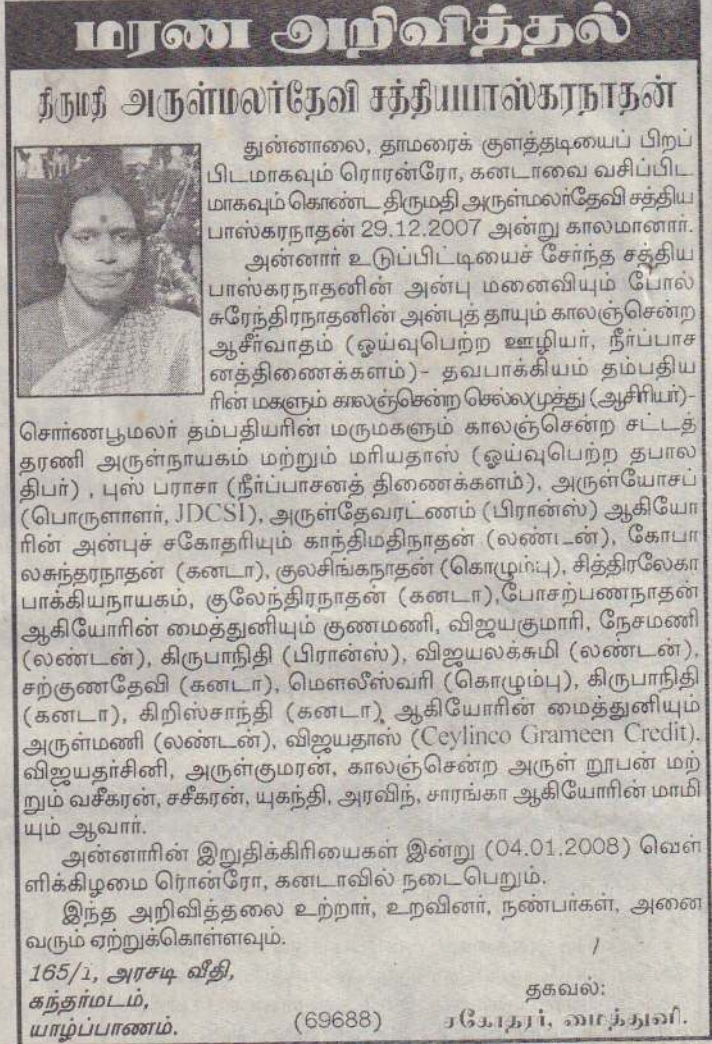 மரண அறிவித்தல்
திருமதி அருள்மலர்தேவி சத்தியபாஸ்கரநாதன்
துன்னாலை, தாமரைக் குளத்தடியைப் பிறப்
பிடமாகவும் ரொரன்ரோ, கனடாவை வசிப்பிட
மாகவும் கொண்ட திருமதி அருள்மலர்தேவி சத்திய
பாஸ்கரநாதன் 29.12.2007 அன்று காலமானார்.
அன்னார் உடுப்பிட்டியைச் சேர்ந்த சத்திய
பாஸ்கரநாதனின் அன்பு மனைவியும் போல்
சுரேந்திரநாதனின் அன்புத் தாயும் காலஞ்சென்ற
ஆசீர்வாதம் (ஓய்வுபெற்ற ஊழியர், நீர்ப்பாச
னத்திணைக்களம்)- தவபாக்கியம் தம்பதிய
ரின் மகளும் காலஞ்சென்ற செல்லமுத்து (ஆசிரியர்)-
சொர்ணபூமலர் தம்பதியரின் மருமகளும் காலஞ்சென்ற சட்டத்
தரணி அருள்நாயகம் மற்றும் மரியதாஸ் (ஓய்வுபெற்ற தபால
திபர்) , புஸ் பராசா (நீர்ப்பாசனத் திணைக்களம்), அருள்யோசப்
(பொருளாளர், JDCSI), அருள்தேவரட்ணம் (பிரான்ஸ்) ஆகியோ
ரின் அன்புச் சகோதரியும் காந்திமதிநாதன் (லண்டன்), கோபா
லசுந்தரநாதன் (கனடா), குலசிங்கநாதன் (கொழும்பு), சித்திரலேகா
பாக்கியநாயகம், குலேந்திரநாதன் (கனடா),போசற்பணநாதன்
ஆகியோரின் மைத்துனியும் குணமணி, விஜயகுமாரி, நேசமணி
(லண்டன்), கிருபாநிதி (பிரான்ஸ்), விஜயலக்சுமி (லண்டன்),
சற்குணதேவி (கனடா), மௌலீஸ்வரி (கொழும்பு), கிருபாநிதி
(கனடா), கிறிஸ்சாந்தி (கனடா) ஆகியோரின் மைத்துனியும்
அருள்மணி (லண்டன்), விஜயதாஸ் (Ceylinco Grameen Credit),
விஜயதர்சினி, அருள்குமரன், காலஞ்சென்ற அருள் றூபன் மற்
றும் வசீகரன், சசீகரன், யுகந்தி, அரவிந், சாரங்கா ஆகியோரின் மாமி
யும் ஆவார்.
அன்னாரின் இறுதிக்கிரியைகள் இன்று (04.01.2008) வெள்
ளிக்கிழமை ரொன்ரோ, கனடாவில் நடைபெறும்.
இந்த அறிவித்தலை உற்றார், உறவினர், நண்பர்கள், அனை
வரும் ஏற்றுக்கொள்ளவும்.
165/1, அரசடி வீதி,
கந்தர்மடம்,
யாழ்ப்பாணம்.
(69688)
தகவல்:
சகோதரர், மைத்துனி.